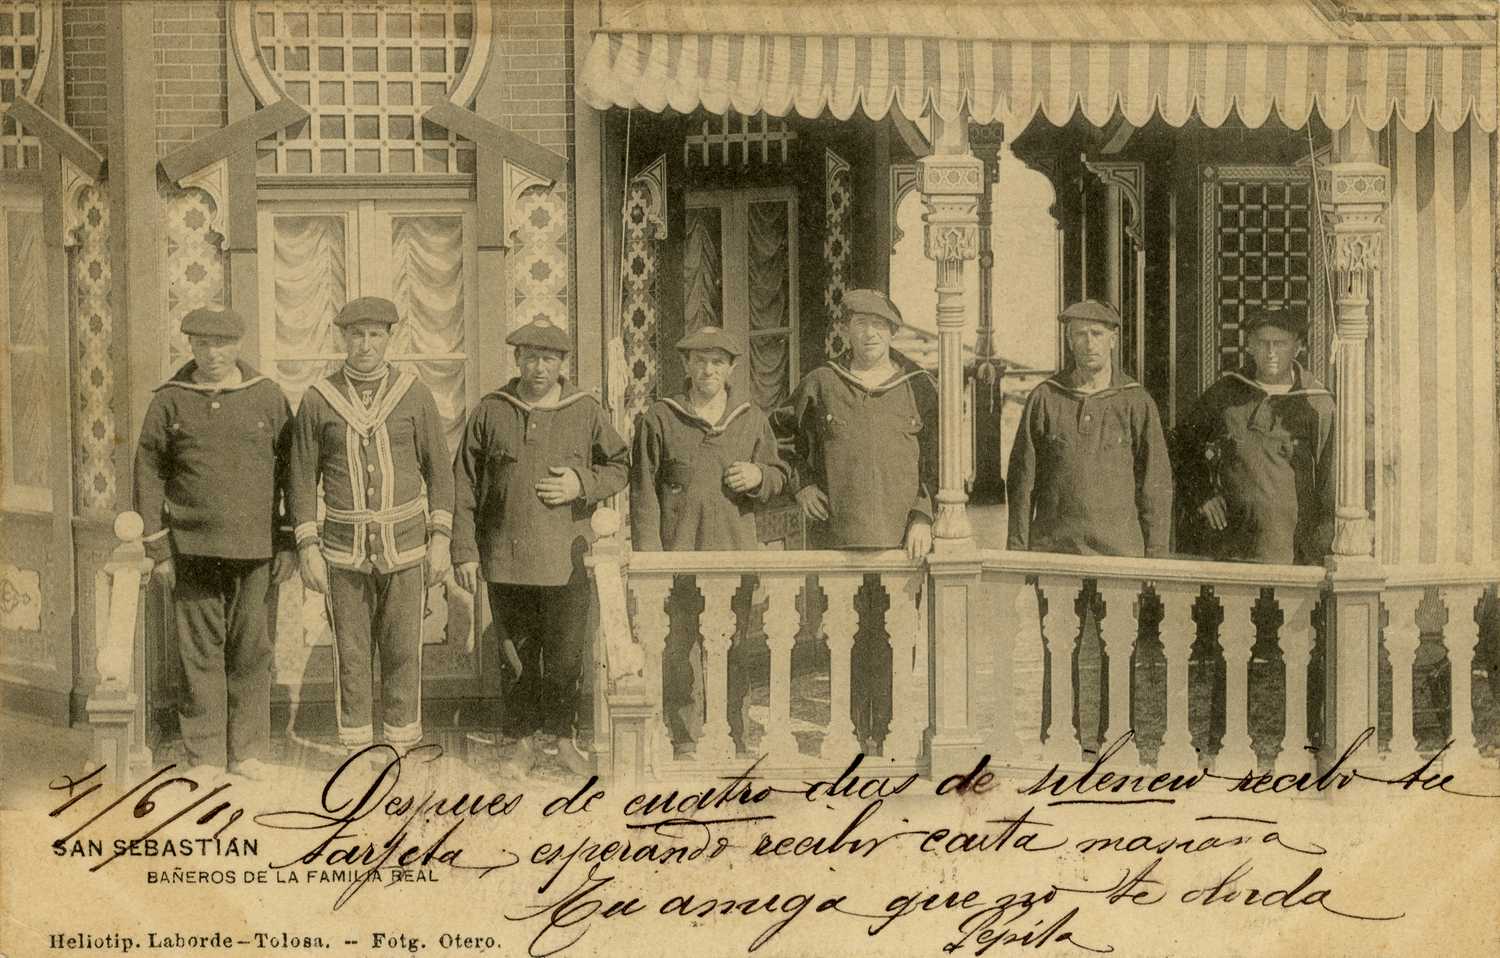 4/6/02 Despues de cuatro dias de silencio recibo tu
tarjeta, esperando recibir carta mañana
Tu amiga que no te olvida
Pepita
SAN SEBASTIÁN
BAÑEROS DE LA FAMILIA REAL
Heliotip. Laborde-Tolosa. -- Fotg. Otero.